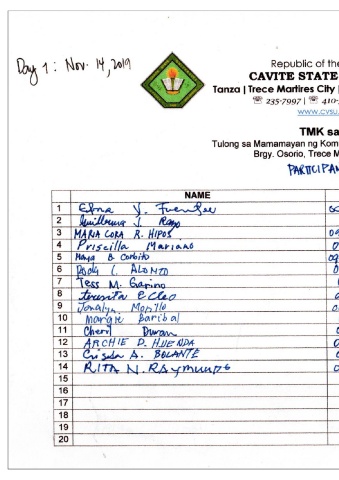 Day 1: Nov. 14, 2019
Republic of the
CAVITE STATE
Tanza | Trece Martires City |
235-7997 | 410-
www.cvsu.
TMK sa
Tulong sa Mamamayan ng Kom
Brgy. Osorio, Trece M
PARTICIPAN
NAME
1 Edna V. Fuentes
2 Guillermo J. Rago
3 MARIA CORA R. HIPOS
4 Priscilla Mariano
5 Maya B Corbito
6 Rody L. ALONTO
7 Tess M. Garino
8 teresita E Cleo
9 Jonalyn Morillo
10 Margie Baribal
11 Cheryl Duran
12 ARCHIE D. HUENDA
13 Crisela A. BOLANTE
14 RITA N. RAymundo
15
16
17
18
19
20